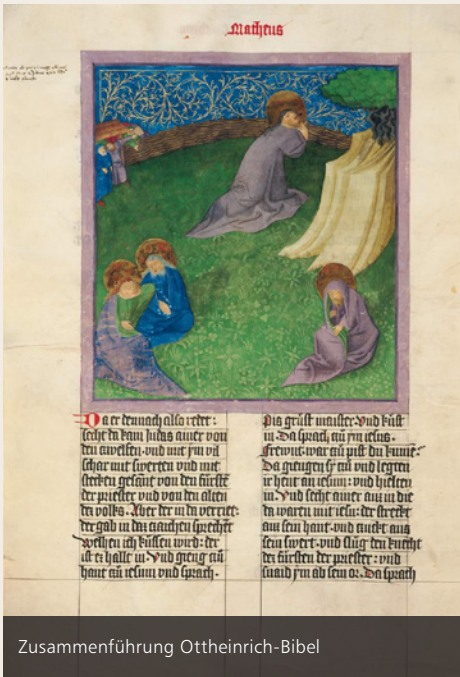 Matheus
Da er dennach also redet:
secht da kam iudas ainer von
den zwelfen. vnd mit ym vil
schar mit swerten vnd mit
stecken gesant von den fürste
der priester vnd von den alten
des volks. Aber der in da verriet:
der gab in das zaichen sprechet
Welhen ich küssen wird: der
ist es haltt in. Vnd gieng zů
hant zů iesum vnd sprach.
Pis grüst maister. Vnd küst
in. Da sprach zů ym iesus.
frewnt. war zů pist du kume.
Da giengen sy zů vnd legten
ir hent an iesum: vnd hielten
in. Vnd secht ainer aus in die
da waren mit iesu: der streckt
aus sein hant. vnd zuckt aus
sein swert. vnd slůg den knecht
des fürsten der priester: vnd
snaid ym ab sein or. Da sprach
Zusammenführung Ottheinrich-Bibel